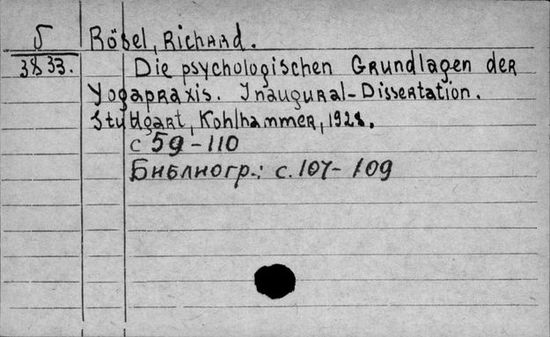 5
3833.
Rösel, Richard.
Die psychologischen Grundlagen der
Yogapraxis. Inaugural-Dissertation.
Stuttgart, Kohlhammer, 1928.
с 59-110
Библиогр.: с. 107-109